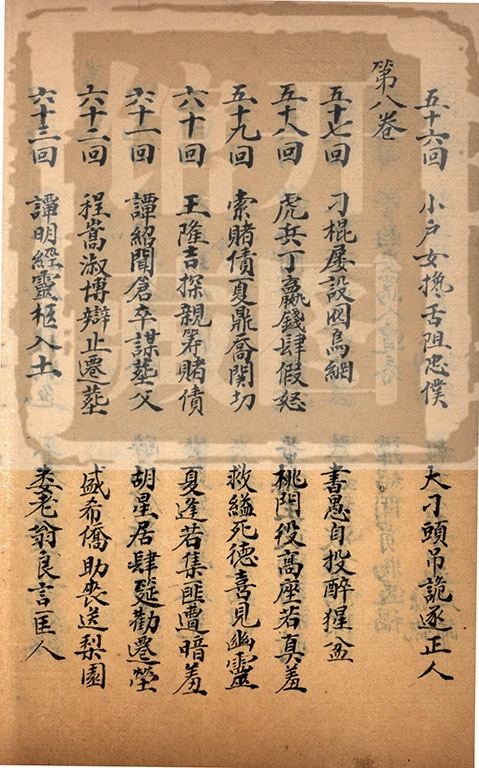 五十六回 小户女攙舌阻忠僕 大刁頭吊詭逐正人
第八卷
五十七回 刁棍屡設囮鳥網 書愚自投醉猩盆
五十八回 虎兵丁贏錢肆假怒 桃門役高座若真羞
五十九回 索賭債夏鼎喬関切 救縊死德喜見幽靈
六十回 王隆吉探親籌賭債 夏逢若集匪遭暗羞
六十一回 譚紹聞倉卒謀塟父 胡星居肆誕勸遷塋
六十二回 程嵩淑博辯止遷塟 盛希僑助喪送梨園
六十三回 譚明經靈柩入土 婁老翁良言匡人